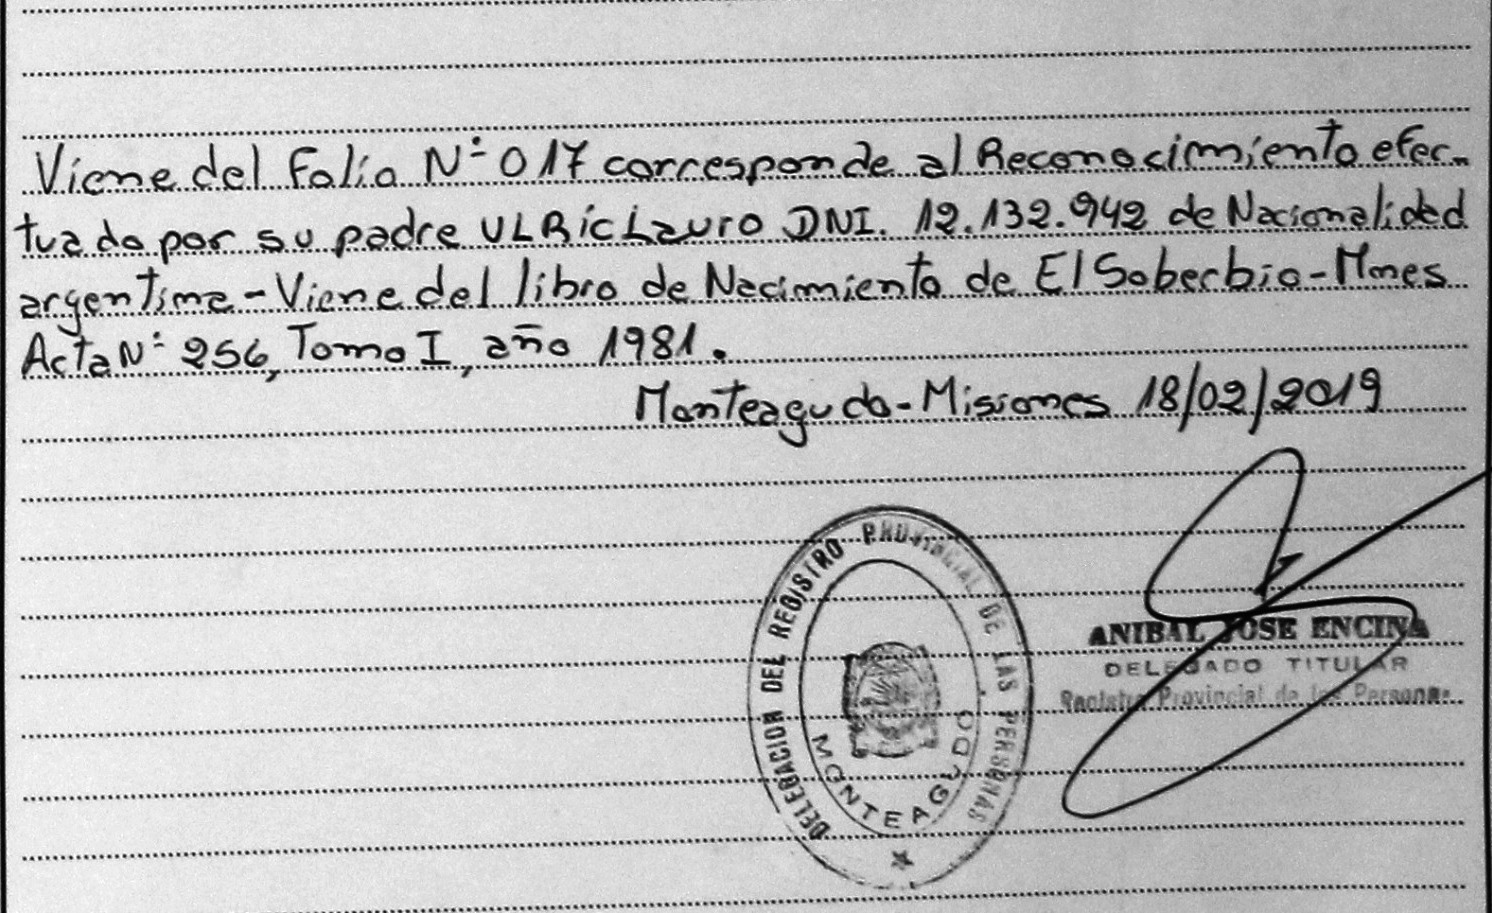 Viene del Folio N° 017 corresponde al Reconocimiento efec-
tuado por su padre ULRic Lauro DNI. 12.132.942 de Nacionalidad
argentina - Viene del libro de Nacimiento de El Soberbio - Mnes
Acta N° 256, Tomo I, año 1981.
Monteagudo - Misiones 18/02/2019
DELEGACION DEL REGISTRO PROVINCIAL DE LAS PERSONAS
MONTEAGUDO
ANIBAL JOSE ENCINA
DELEGADO TITULAR
Registro Provincial de las Personas